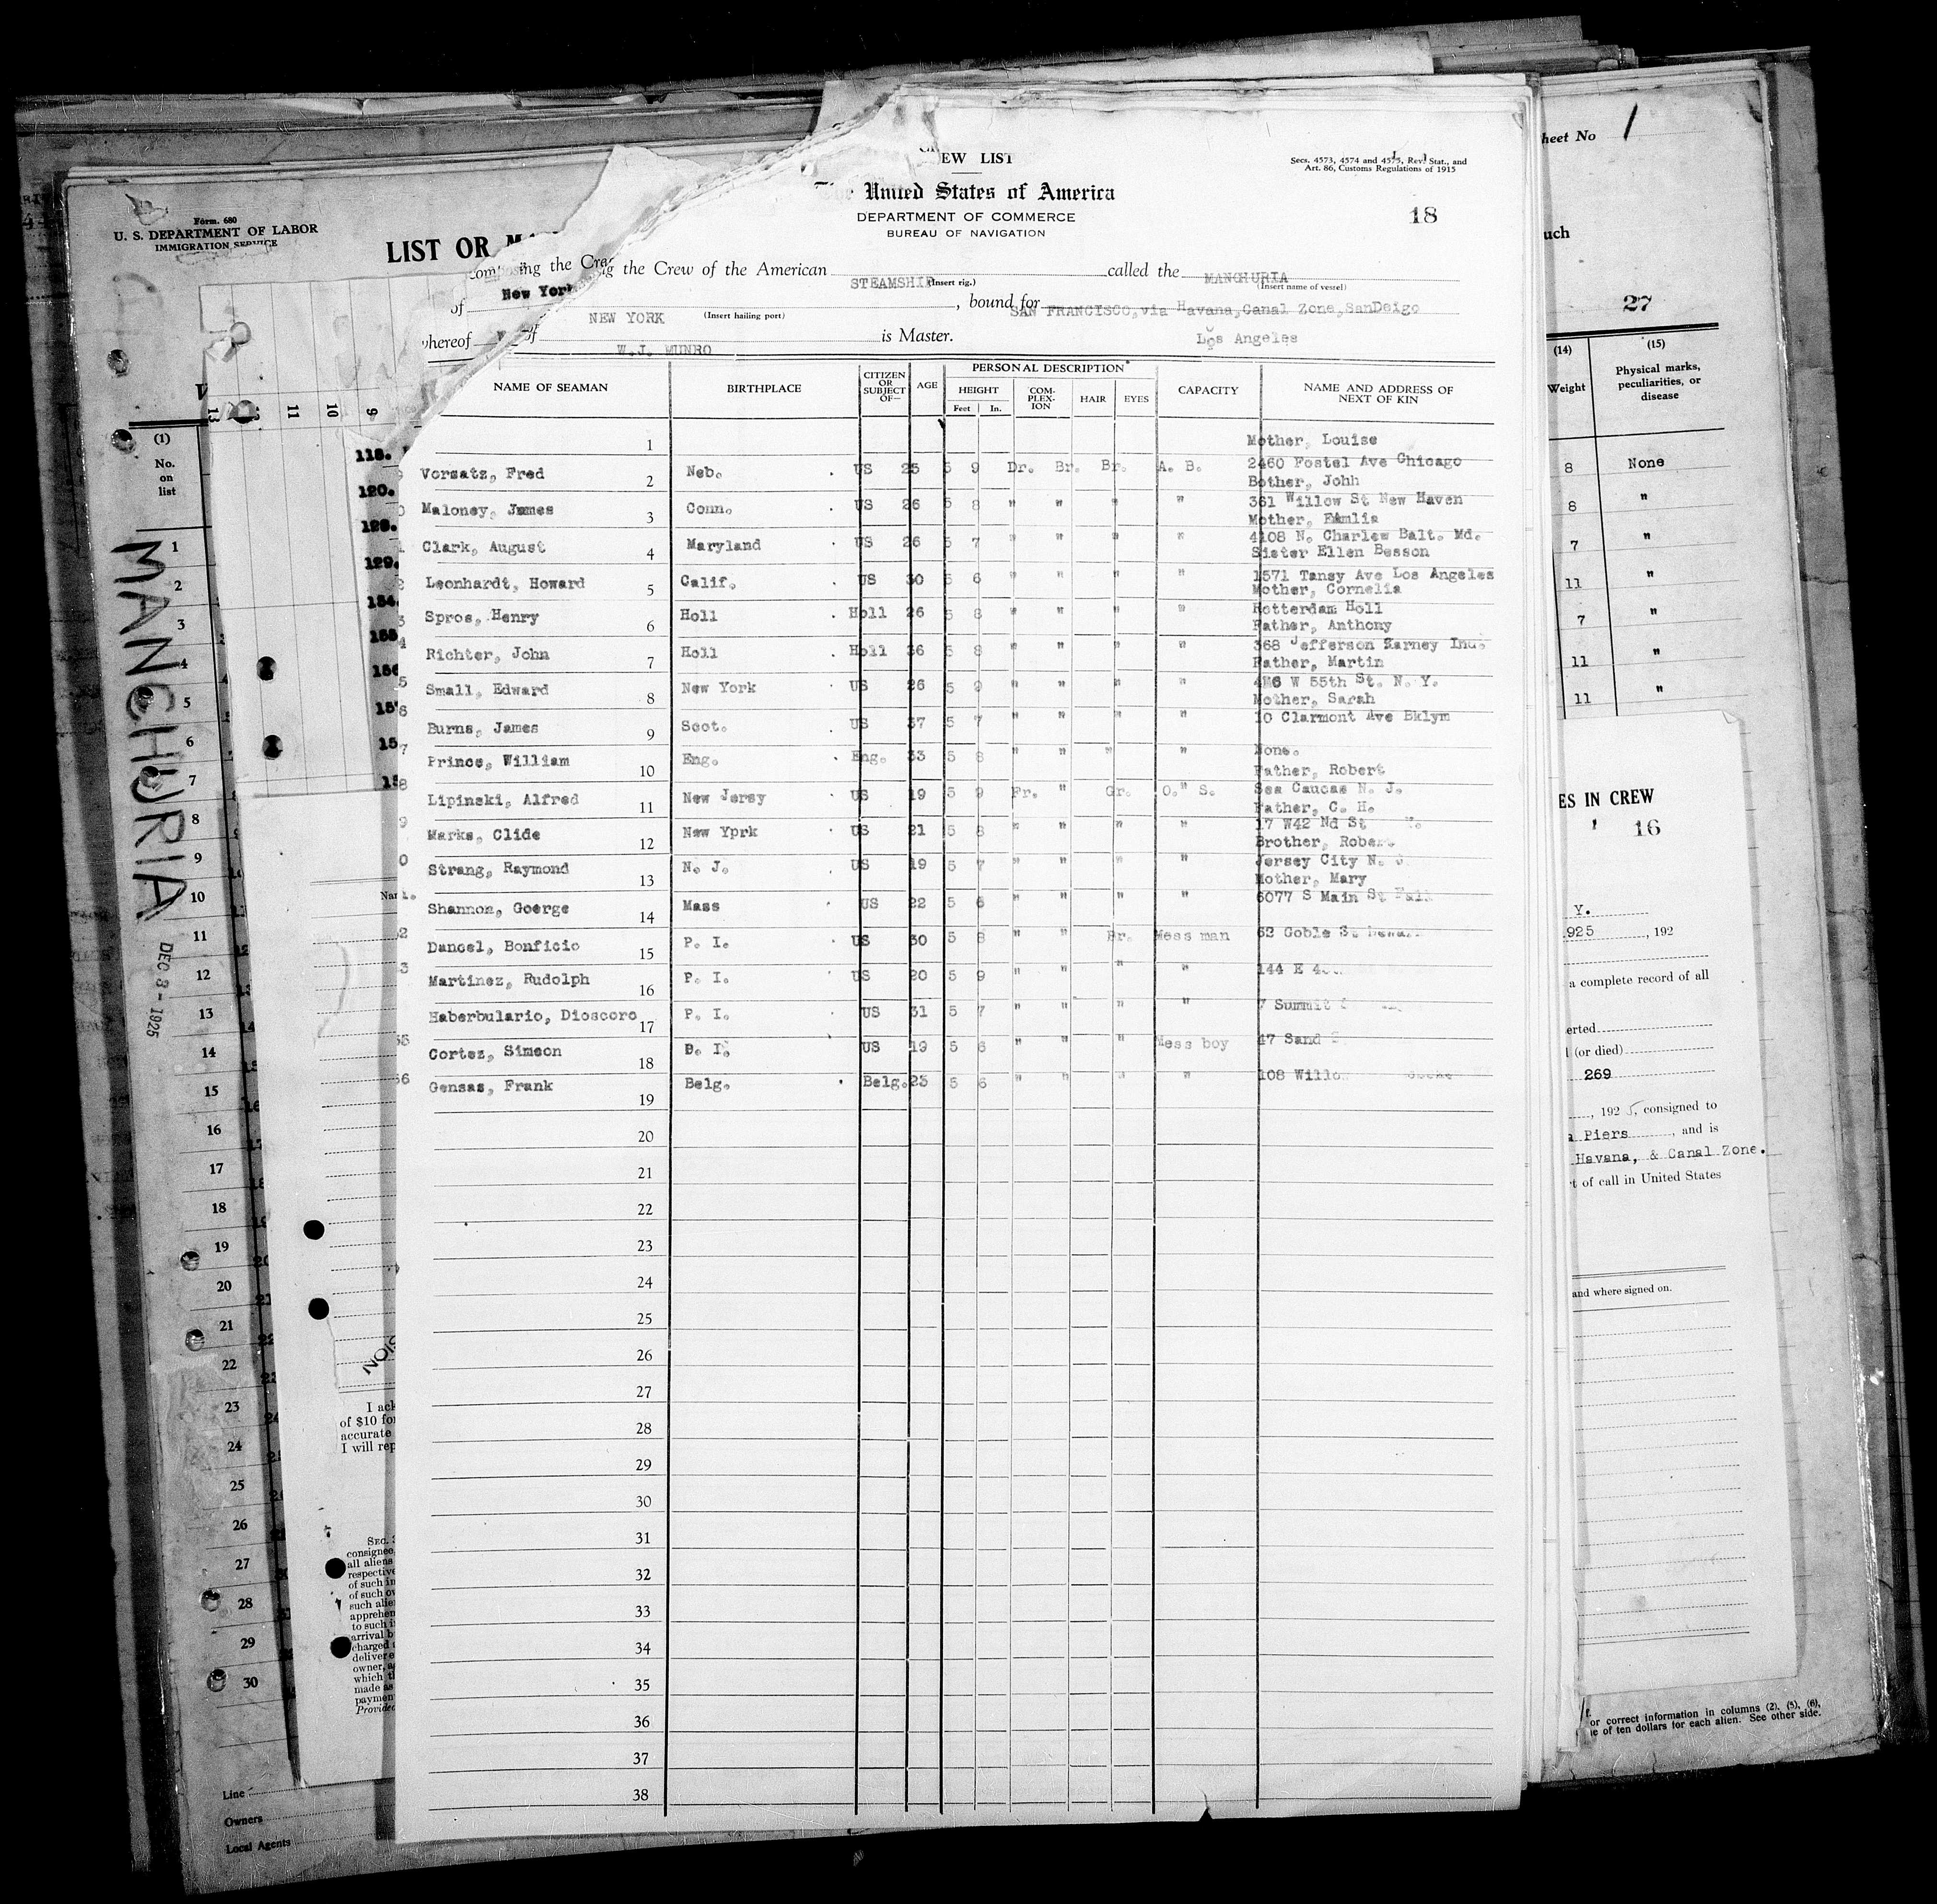 Form. 680
U. S. DEPARTMENT OF LABOR
IMMIGRATION SERVICE
LIST OR
EW LIST
The United States of America
DEPARTMENT OF COMMERCE
BUREAU OF NAVIGATION
Secs. 4573, 4574 and 4575, Rev. Stat., and
Art. 86, Customs Regulations of 1915
18
composing the Crew
ing the Crew of the American STEAMSHIP (Insert rig.) called the MANCHURIA (Insert name of vessel)
of New York
of NEW YORK (Insert hailing port), bound for SAN FRANCISCO, via Havana, Canal Zone, SanDeigo
Los Angeles
whereof W.J. MUNRO is Master.
NAME OF SEAMAN BIRTHPLACE CITIZEN OR SUBJECT OF— AGE PERSONAL DESCRIPTION HEIGHT Feet In. COM-PLEX-ION HAIR EYES CAPACITY NAME AND ADDRESS OF NEXT OF KIN
1 Mother, Louise
Vorsatz, Fred 2 Neb. US 25 5 9 Dr. Br. Br. A. B. 2460 Fostel Ave Chicago
Bother, Johh
Maloney, James 3 Conn. US 26 5 8 " " " " 361 Willow St New Haven
Mother,
Clark, August 4 Maryland US 26 5 7 " " " " 4108 N. Charlew Balt. Md.
Sister Ellen Besson
Leonhardt, Howard 5 Calif. US 30 5 6 " " " " 1571 Tansy Ave Los Angeles
Mother, Cornelia
Spros, Henry 6 Holl Holl 26 5 8 " " " " Rotterdam Holl
Father, Anthony
Richter, John 7 Holl Holl 36 5 8 " " " " 368 Jefferson Karney Ind.
Father, Martin
Small, Edward 8 New York US 26 5 9 " " " " W 55th St. N. Y.
Mother, Sarah
Burns, James 9 Scot. US 37 5 7 " " " " 10 Clarmont Ave Bklym
Prince, William 10 Eng. Eng. 33 5 8 " " " " None.
Father, Robert
Lipinski, Alfred 11 New Jersy US 19 5 9 Fr. " Gr. O. S. Sea Caucas N. J.
Father, C. H.
Marks, Clide 12 New Yprk US 21 5 8 " " " " 17 W42 Nd St
Brother, Robert
Strang, Raymond 13 N. J. US 19 5 7 " " " " Jersey City N. J.
Mother, Mary
Shannon, Goerge 14 Mass US 22 5 6 " " " " 6077 S Main St
Dancel, Bonficio 15 P. I. US 30 5 8 " " Br. Mess man 62 Goble St
Martinez, Rudolph 16 P. I. US 20 5 9 " " 144 E
Haberbulario, Dioscoro 17 P. I. US 31 5 7 " " " " 7 Summit
Cortez, Simeon 18 P. I. US 19 5 6 " " " Mess boy 47 Sand
Gensas, Frank 19 Belg. Belg. 23 5 6 " " " " 108
20
21
22
23
24
25
26
27
28
29
30
31
32
33
34
35
36
37
38
MANCHURIA
DEC 8 - 1925
(1)
No.
on
list
1
2
3
4
5
6
7
8
9
10
11
12
13
14
15
16
17
18
19
20
21
22
23
24
25
26
27
28
29
30
Line
Owners
Local Agents
13 12 11 10 9
118.
120.
128.
129.
I ack
of $10 for
accurate
I will rep
SEC.
consignee
all aliens
respective
of such in
of such ow
such alie
apprehen
to such i
arrival b
charged
deliver
owner, a
which t
made as
payment
Provided
heet No 1
uch
27
(14) (15)
Weight Physical marks, peculiarities, or disease
8 None
8 "
7 "
11 "
7 "
11 "
11 "
ES IN CREW
16
Y.
1925, 192
a complete record of all
erted
(or died)
269
, 192 5, consigned to
Piers, and is
Havana, & Canal Zone.
t of call in United States
and where signed on.
or correct information in columns (2), (5), (6),
e of ten dollars for each alien. See other side.